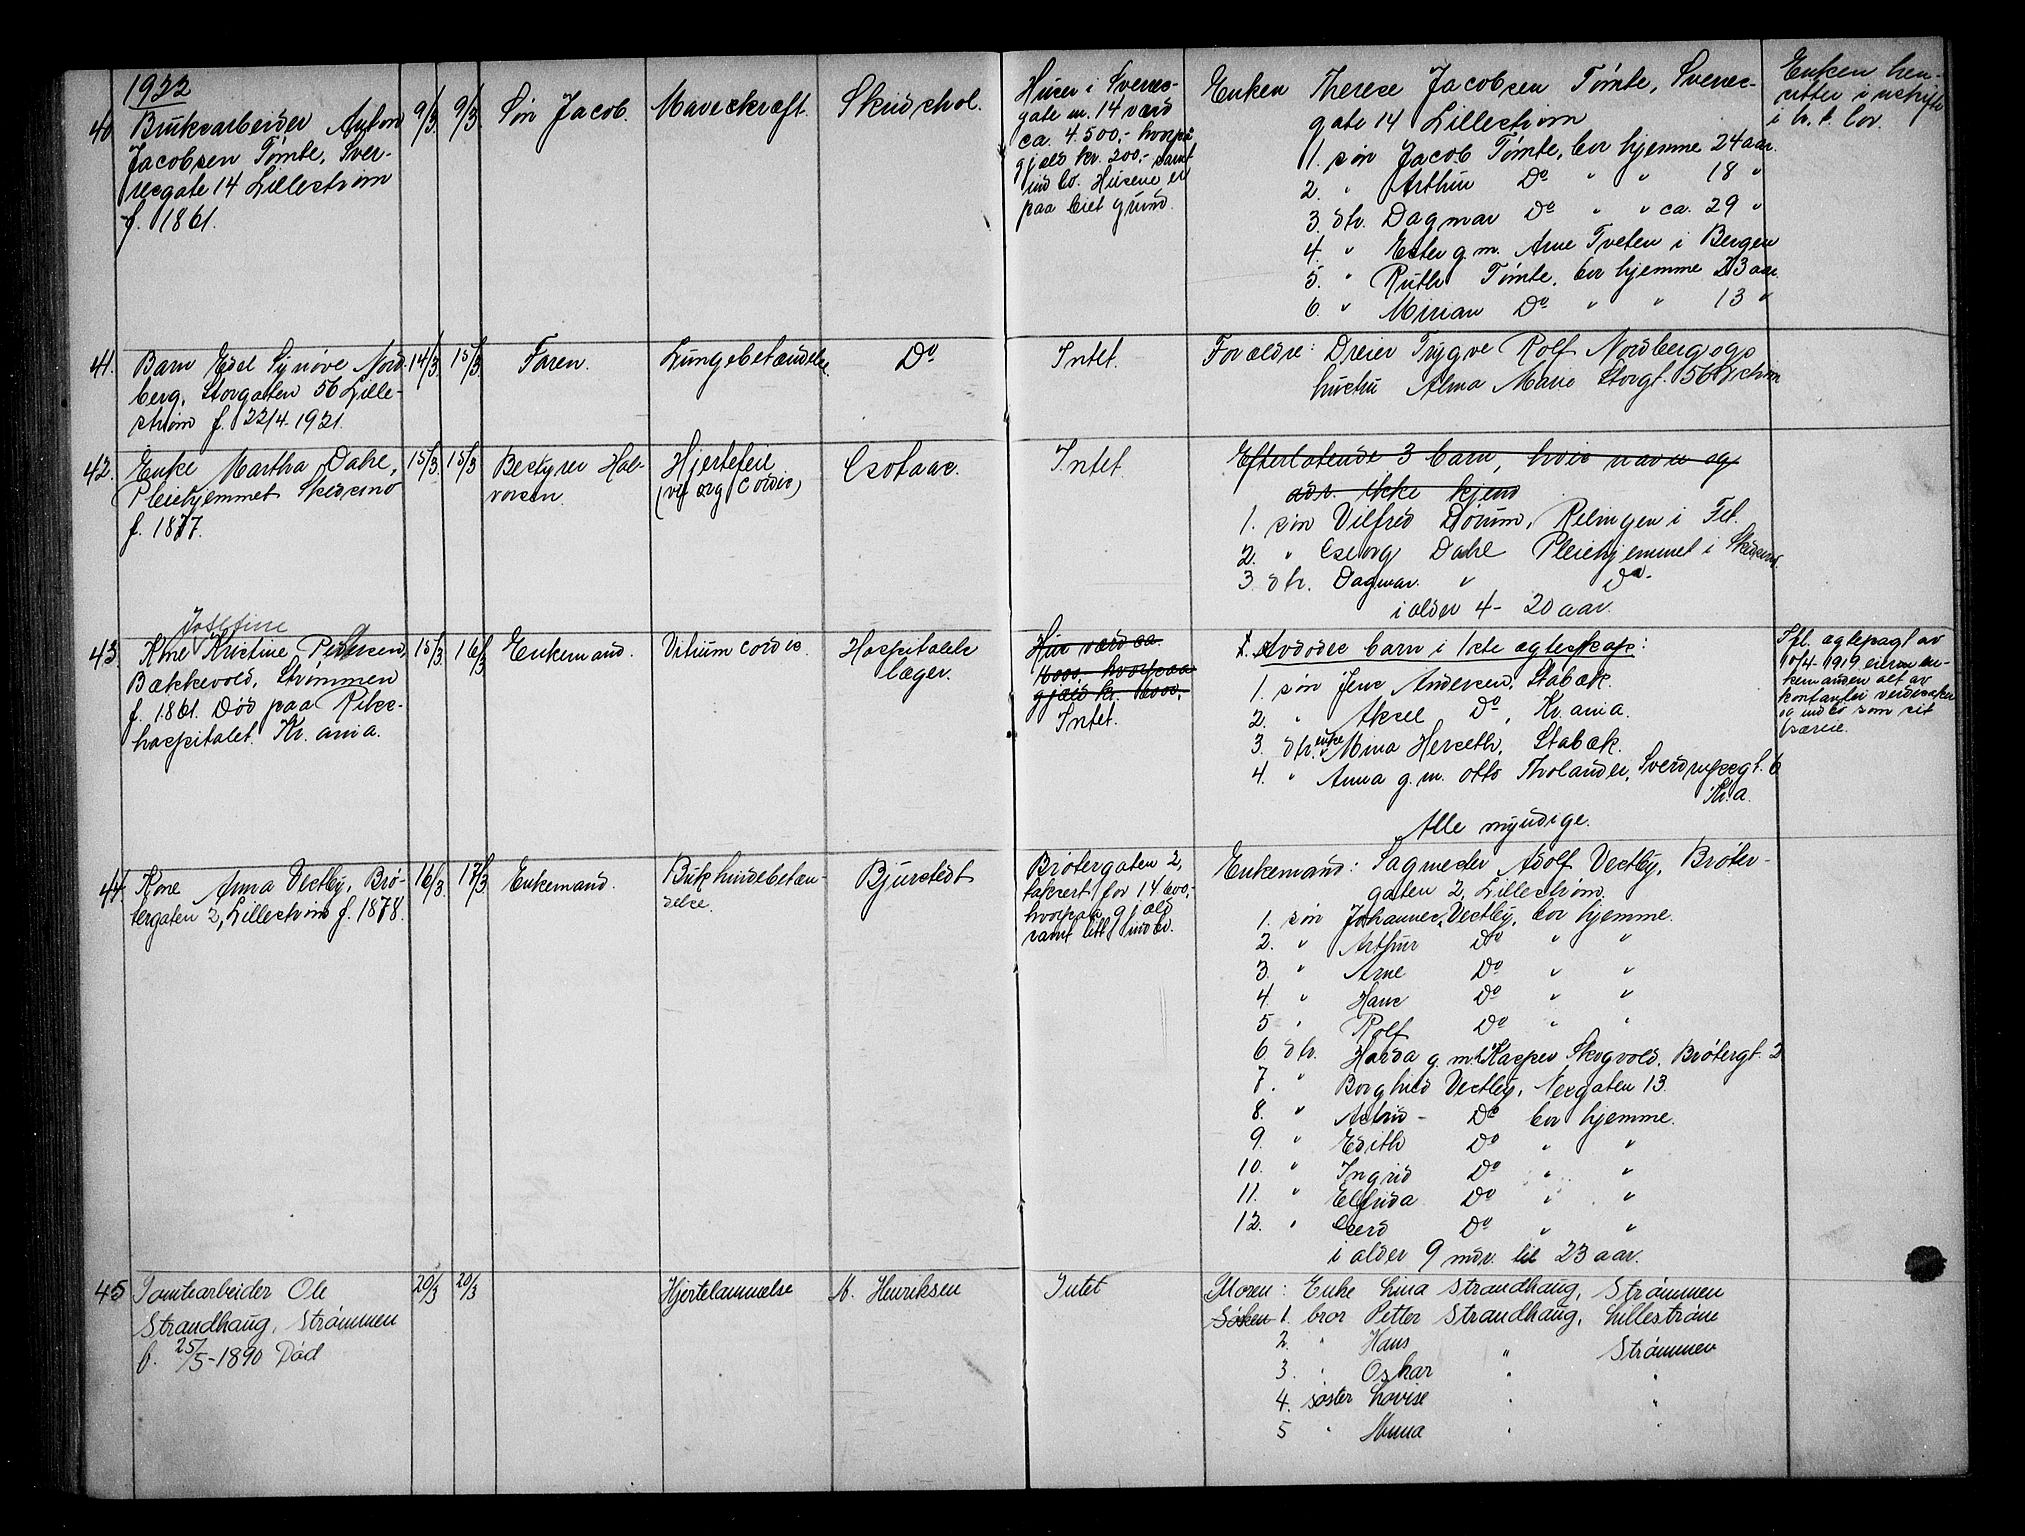 1922
40. Bruksarbeider Anton
Jacobsen Tømte, Sver-
resgate 14 Lillestrøm
f. 1861.
9/3 9/3 Søn Jacob. Mavekræft. Sküdshol.
Huser i Sverres-
gate nr. 14 værd
ca. 4500,- hvorpå
gjæld kr. 200.- samt
indbo. Husene er
paa leiet grund.
Enken Therese Jacobsen Tømte, Sverres-
gate 14 Lillestrøm
1. søn Jacob Tømte, bor hjemme 24 aar.
2. " Arthur Do " " 18 "
3. dtr. Dagmar Do " " ca. 29 "
4. " Ester g.m. Arne Tveten i Bergen
5. " Ruth Tømte, bor hjemme 23 aar.
6. " Mirian Do " " 13 "
Enken hen-
sitter i uskifte
i h. t. lov.
41. Barn Edel Synøve Nord-
berg, Storgaten 56 Lille-
strøm f. 22/4-1921.
14/3 15/3 Faren. Lungebetændelse. Do
Intet.
Forældre: Dreier Trygve Rolf Nordberg og
hustru Alma Marie Storgt. 56
42. Enke Martha Dahl,
Pleiehjemmet Skedsmo
f. 1877.
15/3 15/3 Bestyrer Hal-
vorsen.
Hjertefeil
(vit org cordis)
Gotaas.
Intet.
Efterlatende 3 barn, hvis navn og
adr. ikke kjend
1. søn Vilfred Dørum, Rælingen i Fet.
2. " Georg Dahl Pleiehjemmet i Skedsmo.
3. dtr. Dagmar. " Do -
i alder 4 - 20 aar.
Josefine
43. Kone Kristine Pedersen
Bækkevold, Strømmen
f. 1861. Død paa Riks-
hospitalet. Kr.ania.
15/3 16/3 Enkemand. Vitium cordis. Hospitalets
læger.
Hus værd ca.
hvorpaa
gjæld kr.
Intet.
Avdødes barn i 1ste egteskap:
1. søn Jens Andersen, Stabæk.
2. " Aksel Do, Kr.ania.
3. dtr. enke Mina Herseth, Stabæk.
4. " Anna g.m. Otto Tholander, Sverdrupsgt. 6
Kr.a.
Alle myndige.
Ifl. egtepagt av
10/4-1919 eier en-
kemanden alt av
kontanter verdisaker
og indbo som sit
særeie.
44. Kone Anna Vestby, Brø-
tergaten 2, Lillestrøm f. 1878.
16/3 17/3 Enkemand. Bukhindebetæn-
delse.
Bjurstedt
Brøtergaten 2,
taksert for 14600,-
hvorpaa gjæld
samt litt indbo.
Enkemand: Sagmester Adolf Vestby, Brøter-
gaten 2, Lillestrøm.
1. søn Johannes Vestby, bor hjemme.
2. " Arthur Do " "
3. " Arne Do " "
4. " Hans Do " "
5 " Rolf Do " "
6. dtr. Harda g.m. Kasper Skogvold. Brøtergt. 2
7. " Borghild Vestby, Nesgaten 13.
8. " Astrid - Do bor hjemme.
9. " Edith Do " "
10. " Ingrid Do " "
11. " Elfrida Do " "
12. " Gerd Do " "
i alder 9 mdr. til 23 aar.
45 Tomtearbeider Ole
Strandhaug, Strømmen
f. 25/5-1890 Død
20/3 20/3 Hjertelammelse M. Henriksen
Intet
Moren: Enke Lina Strandhaug, Strømmen
Søsken 1. bror Petter Strandhaug, Lillestrøm
2. " Hans " Strømmen
3. " Oskar " "
4. søster Lovise " "
5 " Anna " "